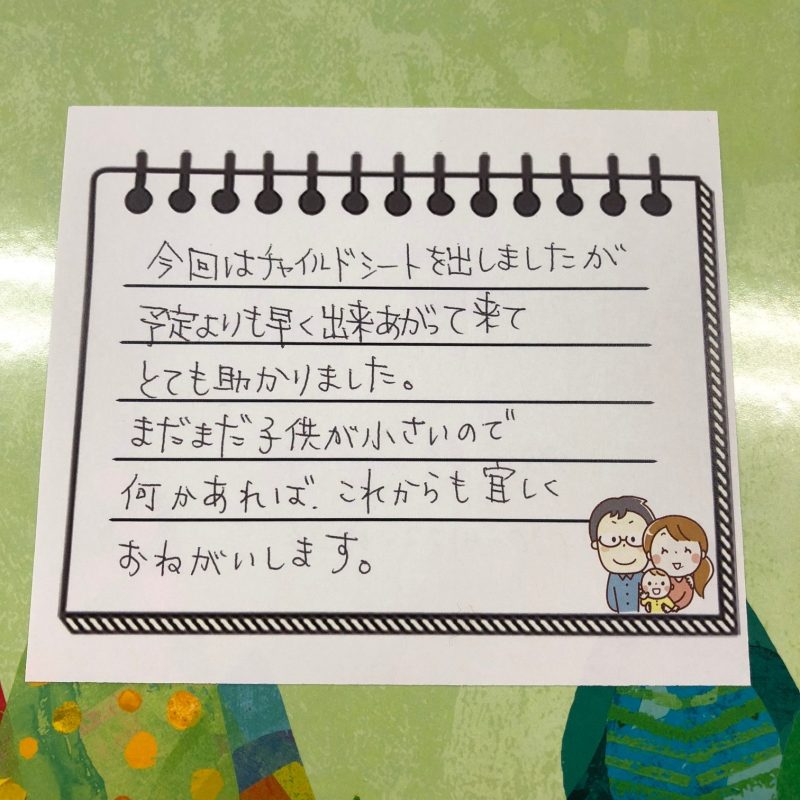 今回はチャイルドシートを出しましたが
予定よりも早く出来あがって来て
とても助かりました。
まだまだ子供が小さいので
何かあれば、これからも宜しく
おねがいします。